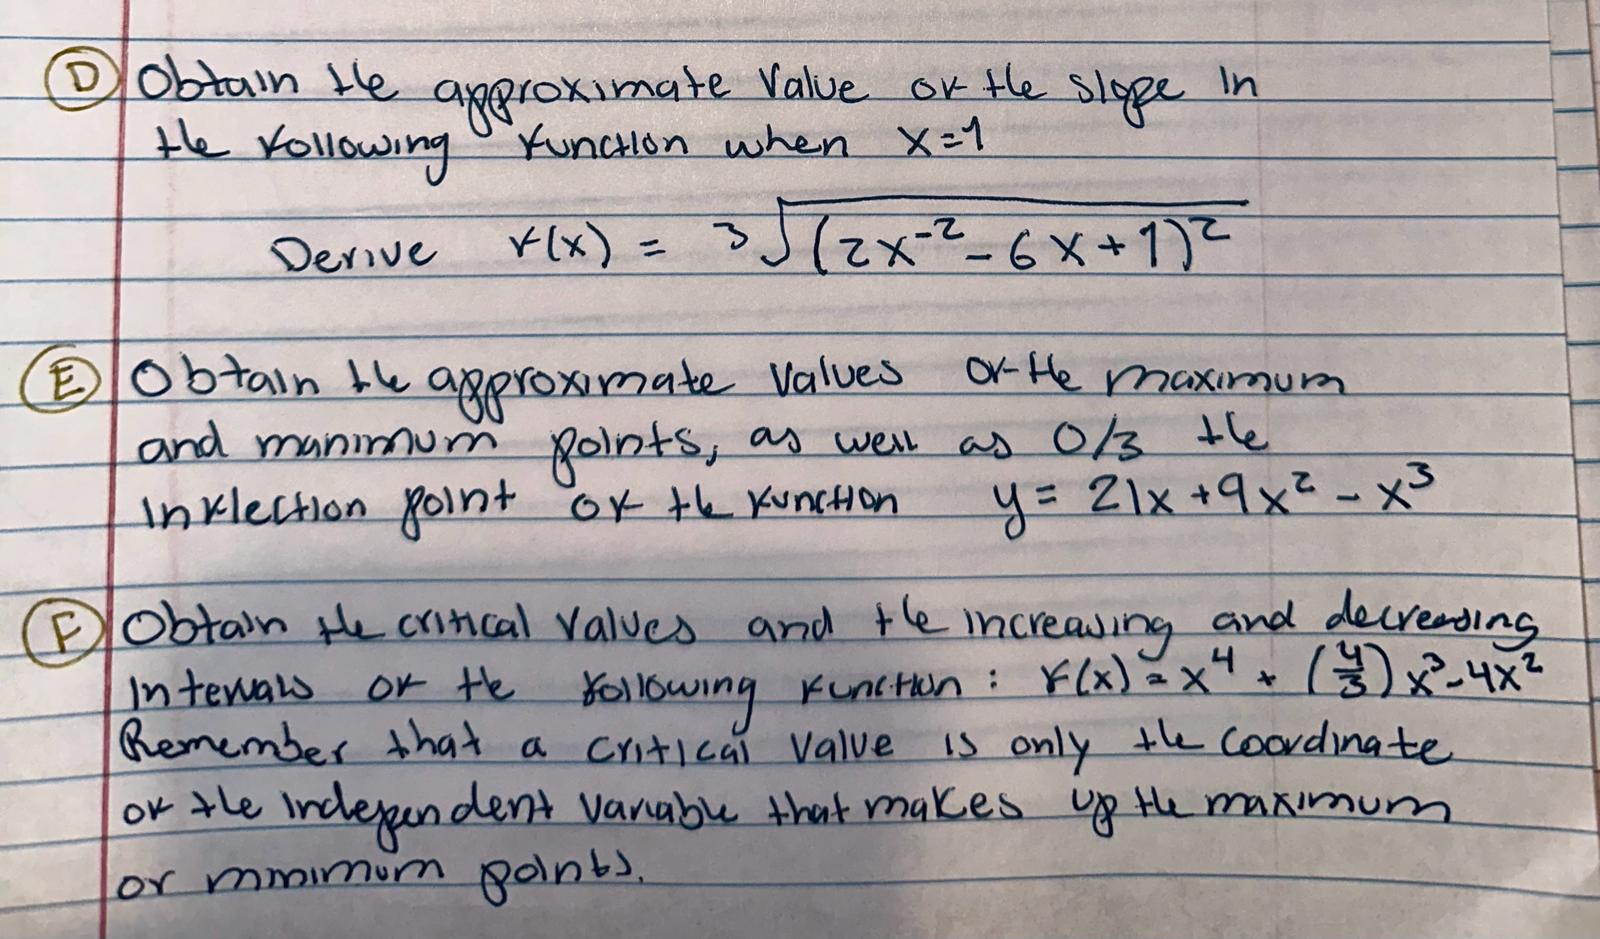 D Obtain the approximate value of the slope in
the following function when x=1
Derive f(x) = ³√(2x⁻² - 6x + 1)²
E Obtain the approximate values of the maximum
and manimum points, as well as 0/3 the
inflection point of the function y = 21x + 9x² - x³
F Obtain the critical values and the increasing and decreasing
intervals of the following function: f(x) = x⁴ + (4/3)x³ - 4x²
Remember that a critical value is only the coordinate
of the independent variable that makes up the maximum
or minimum points.